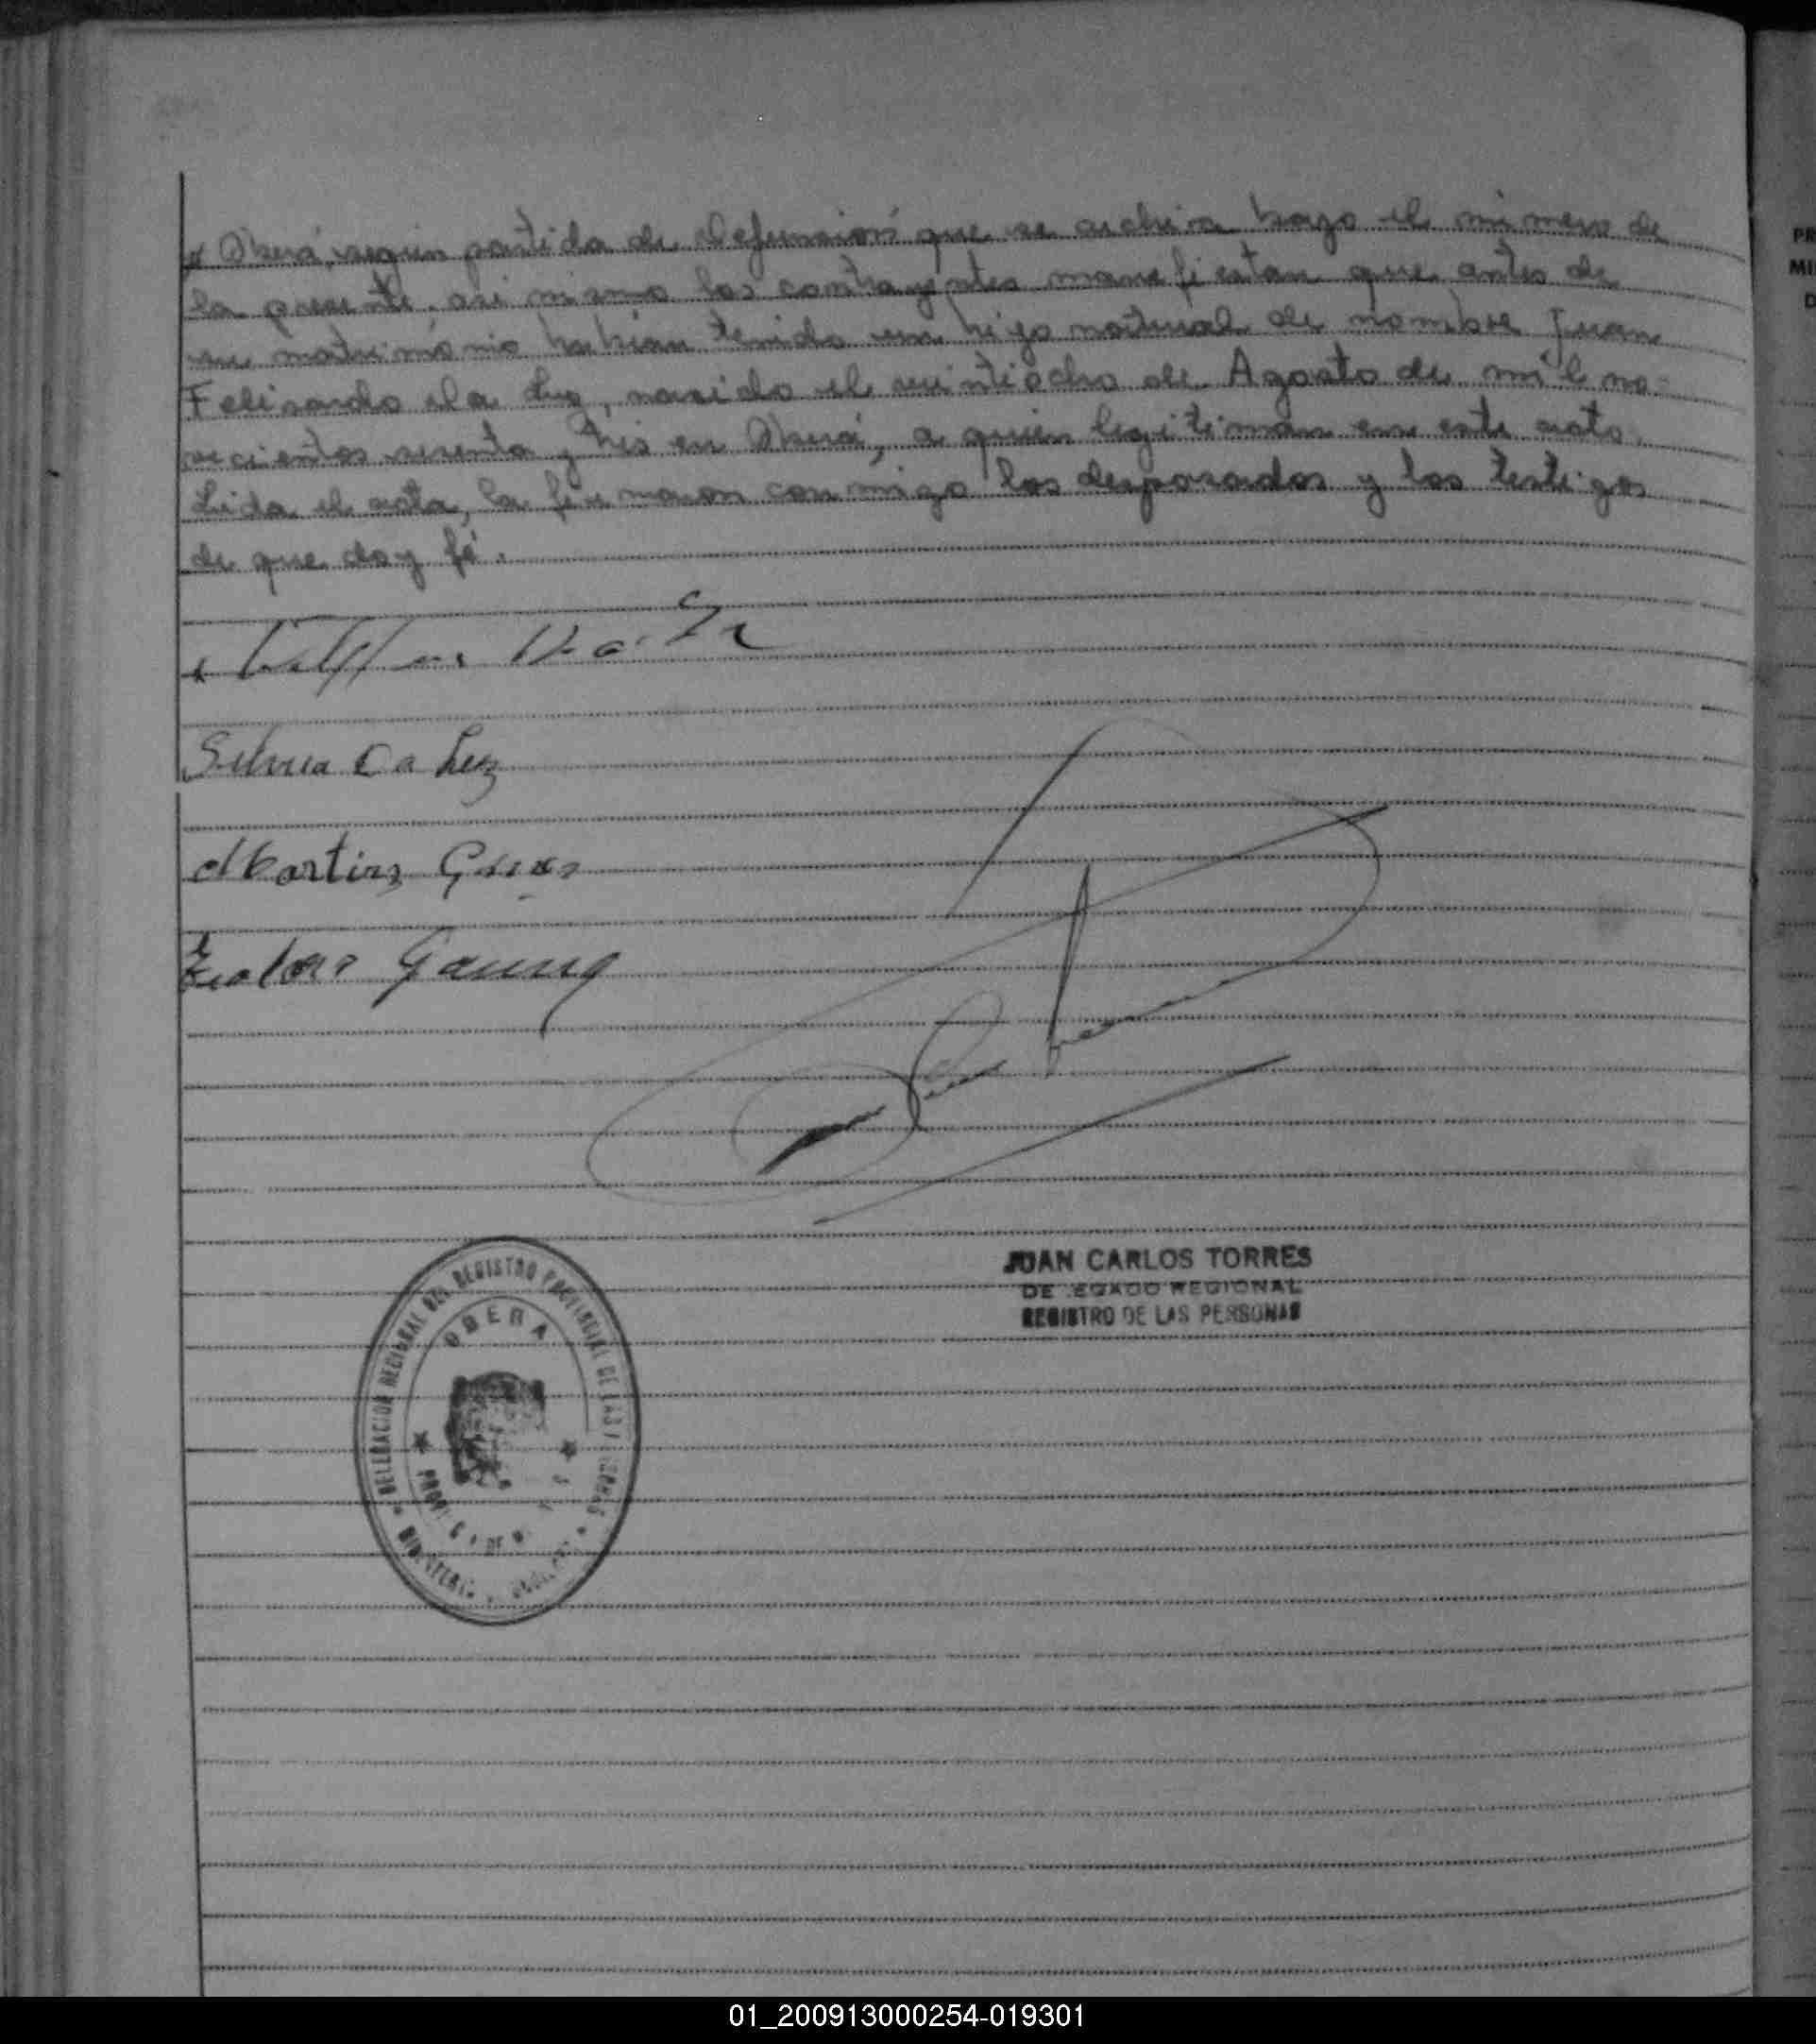 Oberá, según partida de defunsion que se archiva bajo el número de
la presente. asi mismo los contrayentes manifiestan que antes de
su matrimonio habian tenido un hijo natural de nombre Juan
Felisardo da Luz, nasido el veintiocho de Agosto de mil no-
vecientos sesenta y tres en Oberá, a quien legitiman en este acto.
Leida el acta, la firmaron con migo los desposados y los testigos
de que doy fé.
Silvia Da Luz
Martins
JUAN CARLOS TORRES
DELEGADO REGIONAL
REGISTRO DE LAS PERSONAS
DELEGACION REGIONAL DEL REGISTRO PROVINCIAL DE LAS PERSONAS
OBERA
PR
MI
D
01_200913000254-019301